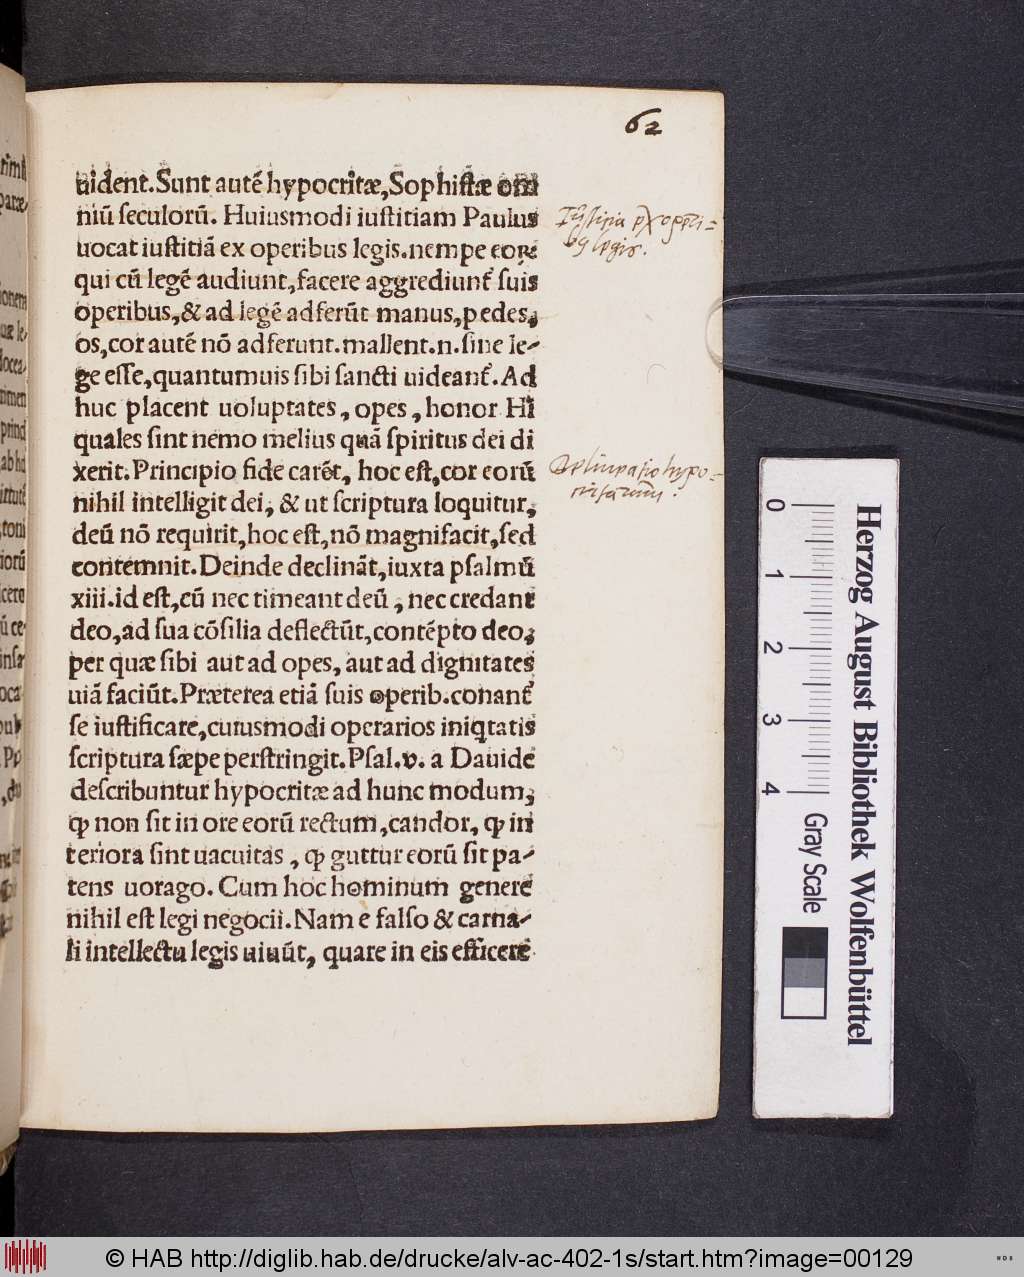 62
uident.Sunt autẽ hypocritæ,Sophistæ om
niũ seculorũ. Huiusmodi iustitiam Paulus
uocat iustitiã ex operibus legis.nempe eoꝝ
qui cũ legẽ audiunt,facere aggrediunt᷑ suis
operibus,& ad legẽ adferũt manus,pedes,
os,cor autẽ nõ adferunt.mallent.n.sine le-
ge esse,quantumuis sibi sancti uideant᷑.Ad
huc placent uoluptates, opes, honor Hi
quales sint nemo melius quã spiritus dei di
xerit.Principio fide carẽt, hoc est,cor eorũ
nihil intelligit dei, & ut scriptura loquitur,
deũ nõ requirit,hoc est,nõ magnifacit,sed
contemnit.Deinde declinãt,iuxta psalmũ
xiii.id est,cũ nec timeant deũ, nec credant
deo,ad sua cõsilia deflectũt,contẽpto deo,
per quæ sibi aut ad opes, aut ad dignitates
uiã faciũt.Præterea etiã suis operib.conant᷑
se iustificare,cuiusmodi operarios iniq̃tatis
scriptura sæpe perstringit.Psal.v. a Dauide
describuntur hypocritæ ad hunc modum,
ꝙ non sit in ore eorũ rectum,candor, ꝙ in
teriora sint uacuitas, ꝙ guttur eorũ sit pa-
tens uorago. Cum hoc hominum genere
nihil est legi negocii.Nam e falso & carna-
li intellectu legis uiuũt, quare in eis efficere
Iustitia ex operi=
bus legis.
hypo-
critarum.
0 1 2 3 4
Gray Scale
Herzog August Bibliothek Wolfenbüttel
© HAB http://diglib.hab.de/drucke/alv-ac-402-1s/start.htm?image=00129